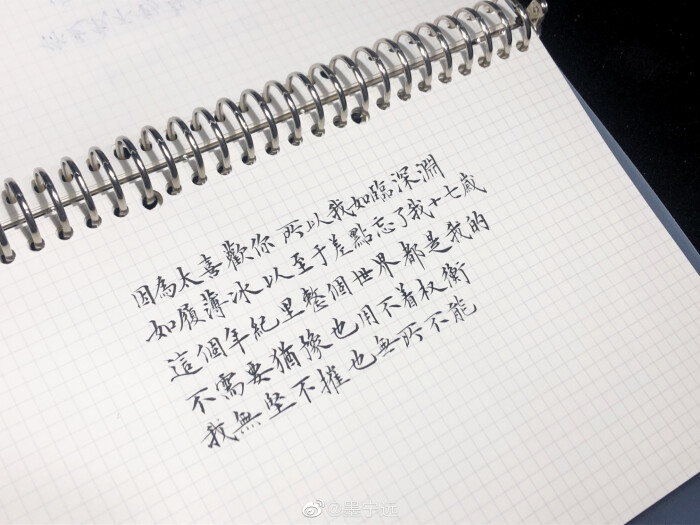 因為太喜歡你 所以我如臨深淵
如履薄冰以至于差點忘了我十七歲
這個年紀里整個世界都是我的
不需要猶豫也用不着权衡
我無堅不摧也無所不能
@墨宁远